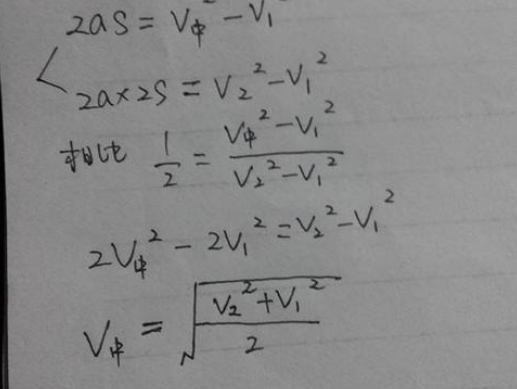 2as = V中² - V₁
2a×2s = V₂² - V₁²
相比 1/2 = (V中² - V₁²)/(V₂² - V₁²)
2V中² - 2V₁² = V₂² - V₁²
V中 = √((V₂² + V₁²)/2)